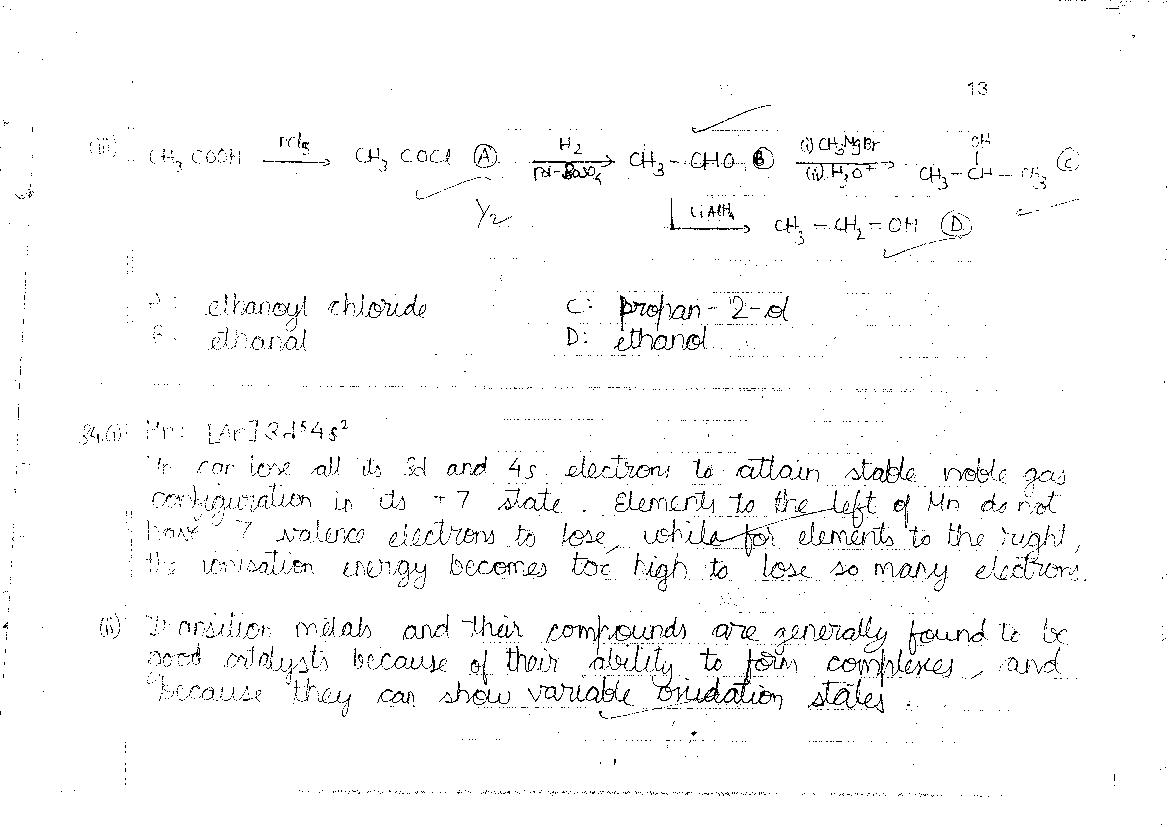 13
(iii) CH3COOH —PCl5→ CH3COCl (A) —H2 / Pd-BaSO4→ CH3-CHO (B) —(i) CH3MgBr (ii) H3O+→ CH3-CH(OH)-CH3 (C)
1/2 LiAlH4 → CH3-CH2-OH (D)
A: ethanoyl chloride C: propan-2-ol
B: ethanal D: ethanol
34.(i) Mn: [Ar] 3d⁵4s²
Mn can lose all its 3d and 4s electrons to attain stable noble gas
configuration in its +7 state. Elements to the left of Mn do not
have 7 valence electrons to lose, while for elements to the right,
the ionisation energy becomes too high to lose so many electrons.
(ii) Transition metals and their compounds are generally found to be
good catalysts because of their ability to form complexes, and
because they can show variable oxidation states.